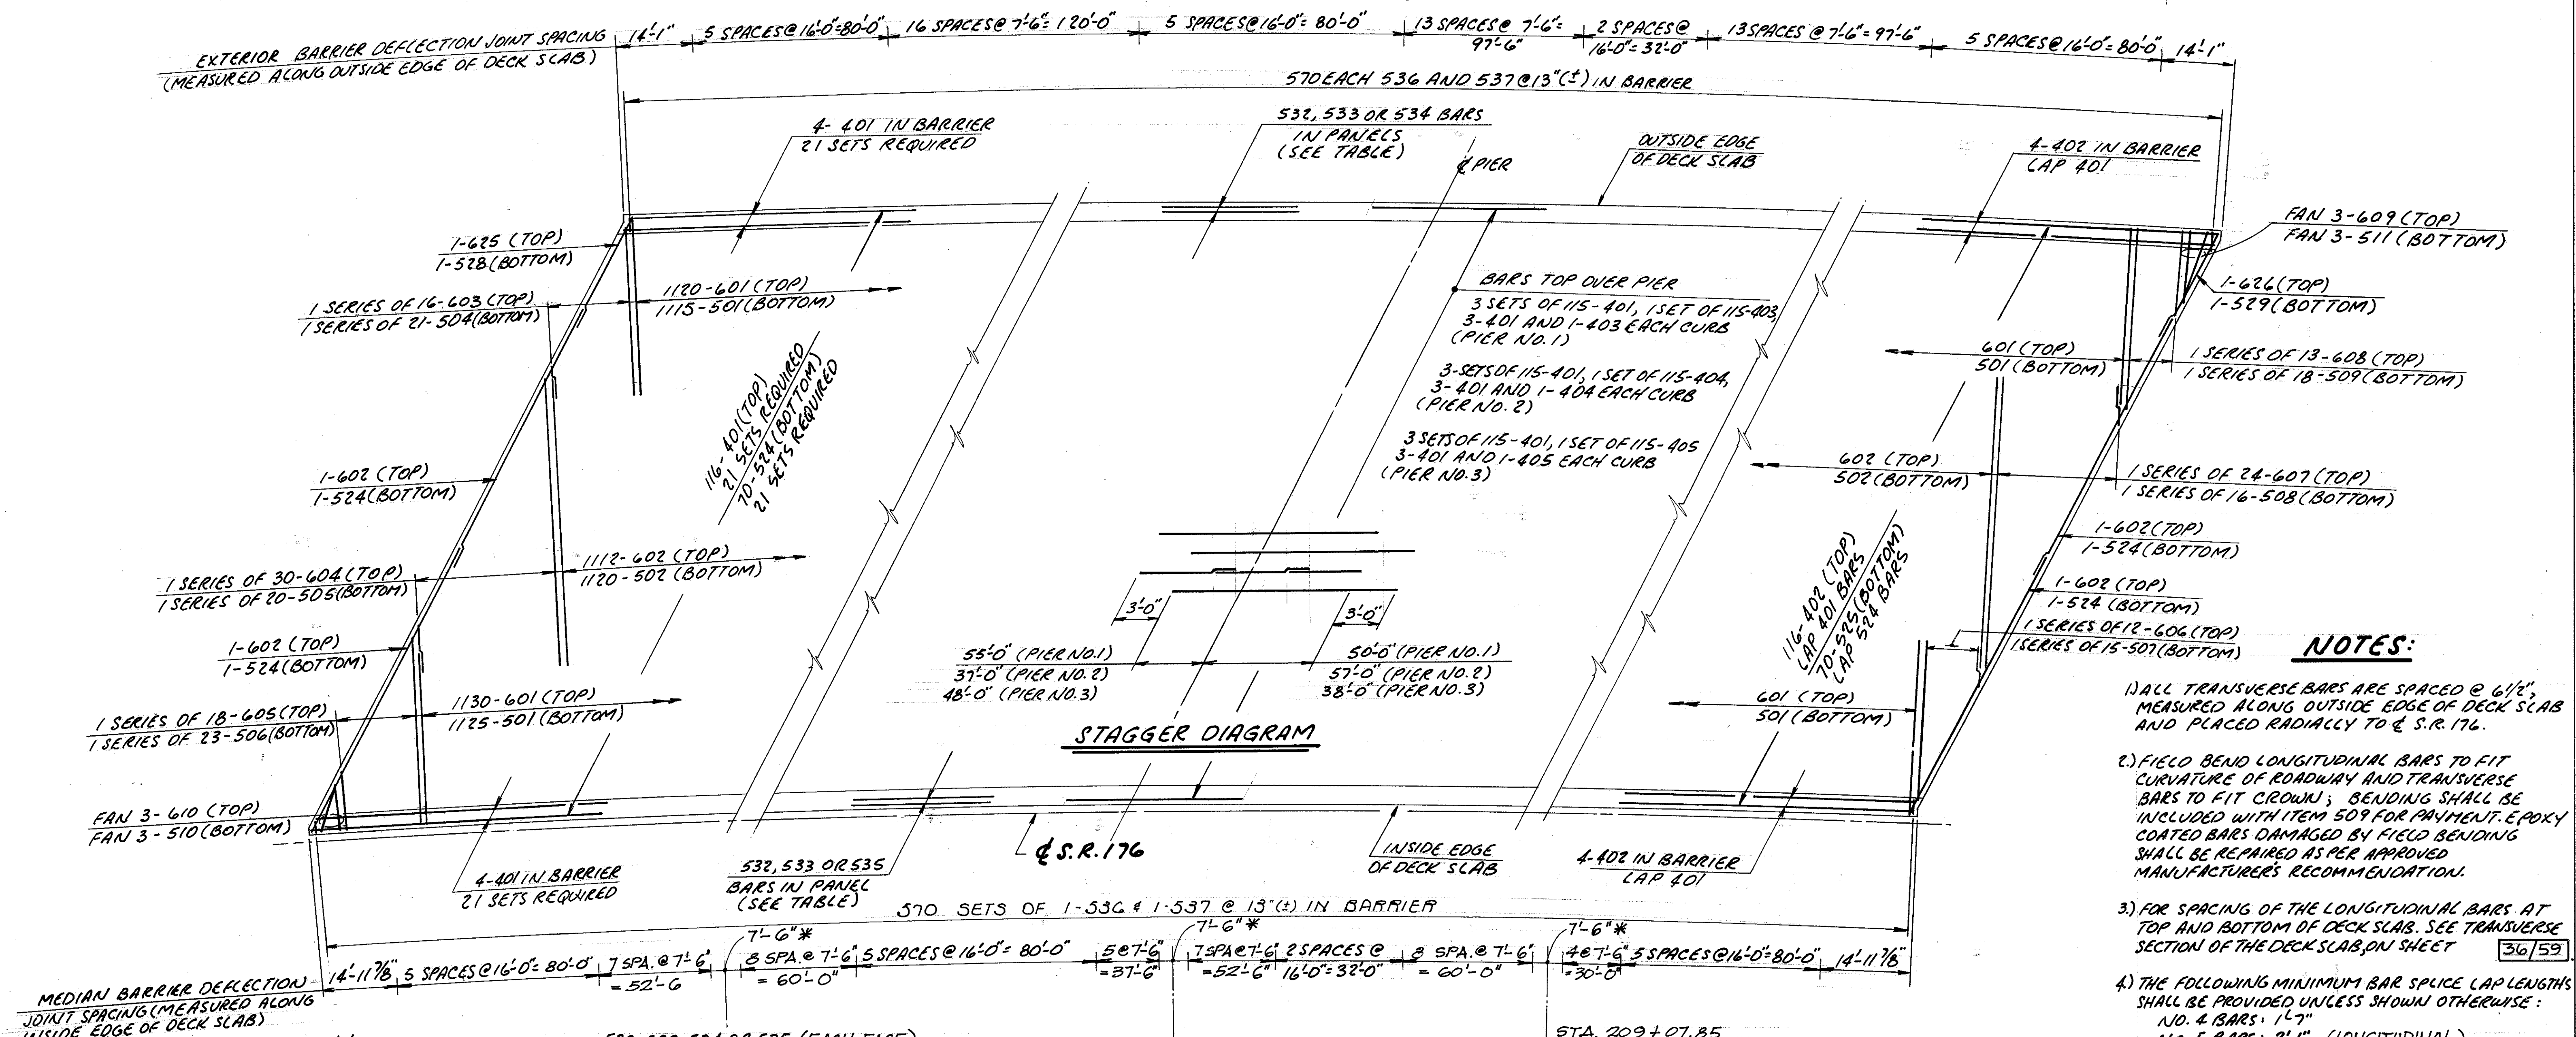 EXTERIOR BARRIER DEFLECTION JOINT SPACING
(MEASURED ALONG OUTSIDE EDGE OF DECK SLAB)
14'-1"
5 SPACES@16'-0"=80'-0"
16 SPACES@ 7'-6"= 120'-0"
5 SPACES@16'-0"= 80'-0"
13 SPACES@ 7'-6"=
97'-6"
2 SPACES@
16'-0"= 32'-0"
13 SPACES @ 7'-6"= 97'-6"
5 SPACES@16'-0"= 80'-0"
14'-1"
570 EACH 536 AND 537 @13"(±) IN BARRIER
4- 401 IN BARRIER
21 SETS REQUIRED
532, 533 OR 534 BARS
IN PANELS
(SEE TABLE)
℄ PIER
OUTSIDE EDGE
OF DECK SLAB
4-402 IN BARRIER
LAP 401
1-625 (TOP)
1-528 (BOTTOM)
FAN 3-609 (TOP)
FAN 3-511 (BOTTOM)
1 SERIES OF 16-603 (TOP)
1 SERIES OF 21-504 (BOTTOM)
1120-601 (TOP)
1115-501 (BOTTOM)
BARS TOP OVER PIER
3 SETS OF 115-401, 1 SET OF 115-403,
3-401 AND 1-403 EACH CURB
(PIER NO. 1)
3-SETS OF 115-401, 1 SET OF 115-404,
3-401 AND 1-404 EACH CURB
(PIER NO. 2)
3 SETS OF 115-401, 1 SET OF 115-405
3-401 AND 1-405 EACH CURB
(PIER NO. 3)
1-626 (TOP)
1-529 (BOTTOM)
601 (TOP)
501 (BOTTOM)
1 SERIES OF 13-608 (TOP)
1 SERIES OF 18-509 (BOTTOM)
116-401 (TOP)
21 SETS REQUIRED
70-524 (BOTTOM)
21 SETS REQUIRED
1-602 (TOP)
1-524 (BOTTOM)
602 (TOP)
502 (BOTTOM)
1 SERIES OF 24-607 (TOP)
1 SERIES OF 16-508 (BOTTOM)
1-602 (TOP)
1-524 (BOTTOM)
1 SERIES OF 30-604 (TOP)
1 SERIES OF 20-505 (BOTTOM)
1112-602 (TOP)
1120-502 (BOTTOM)
3'-0"
3'-0"
116-402 (TOP)
LAP 401 BARS
70-525 (BOTTOM)
LAP 524 BARS
1-602 (TOP)
1-524 (BOTTOM)
1-602 (TOP)
1-524 (BOTTOM)
1 SERIES OF 12-606 (TOP)
1 SERIES OF 15-507 (BOTTOM)
55'-0" (PIER NO. 1)
37'-0" (PIER NO. 2)
48'-0" (PIER NO. 3)
50'-0" (PIER NO. 1)
57'-0" (PIER NO. 2)
38'-0" (PIER NO. 3)
1 SERIES OF 18-605 (TOP)
1 SERIES OF 23-506 (BOTTOM)
1130-601 (TOP)
1125-501 (BOTTOM)
601 (TOP)
501 (BOTTOM)
STAGGER DIAGRAM
FAN 3-610 (TOP)
FAN 3-510 (BOTTOM)
4-401 IN BARRIER
21 SETS REQUIRED
532, 533 OR 535
BARS IN PANEL
(SEE TABLE)
℄ S.R. 176
INSIDE EDGE
OF DECK SLAB
4-402 IN BARRIER
LAP 401
570 SETS OF 1-536 & 1-537 @ 13"(±) IN BARRIER
MEDIAN BARRIER DEFLECTION
JOINT SPACING (MEASURED ALONG
INSIDE EDGE OF DECK SLAB)
14'-11 7/8"
5 SPACES@16'-0"= 80'-0"
7 SPA. @ 7'-6"
= 52'-6
7'-6"*
8 SPA. @ 7'-6"
= 60'-0"
5 SPACES@16'-0"= 80'-0"
5@7'-6"
=37'-6"
7'-6"*
7SPA@7'-6"
=52'-6"
2 SPACES @
16'-0"= 32'-0"
8 SPA. @ 7'-6"
= 60'-0"
7'-6"*
4@7'-6"
=30'-0"
5 SPACES@16'-0"=80'-0"
14'-11 7/8"
STA. 209+07.85
NOTES:
1) ALL TRANSVERSE BARS ARE SPACED @ 6 1/2",
MEASURED ALONG OUTSIDE EDGE OF DECK SLAB
AND PLACED RADIALLY TO ℄ S.R. 176.
2.) FIELD BEND LONGITUDINAL BARS TO FIT
CURVATURE OF ROADWAY AND TRANSVERSE
BARS TO FIT CROWN; BENDING SHALL BE
INCLUDED WITH ITEM 509 FOR PAYMENT. EPOXY
COATED BARS DAMAGED BY FIELD BENDING
SHALL BE REPAIRED AS PER APPROVED
MANUFACTURER'S RECOMMENDATION.
3.) FOR SPACING OF THE LONGITUDINAL BARS AT
TOP AND BOTTOM OF DECK SLAB. SEE TRANSVERSE
SECTION OF THE DECK SLAB, ON SHEET 36/59
4.) THE FOLLOWING MINIMUM BAR SPLICE LAP LENGTHS
SHALL BE PROVIDED UNLESS SHOWN OTHERWISE:
NO. 4 BARS: 1'-7"